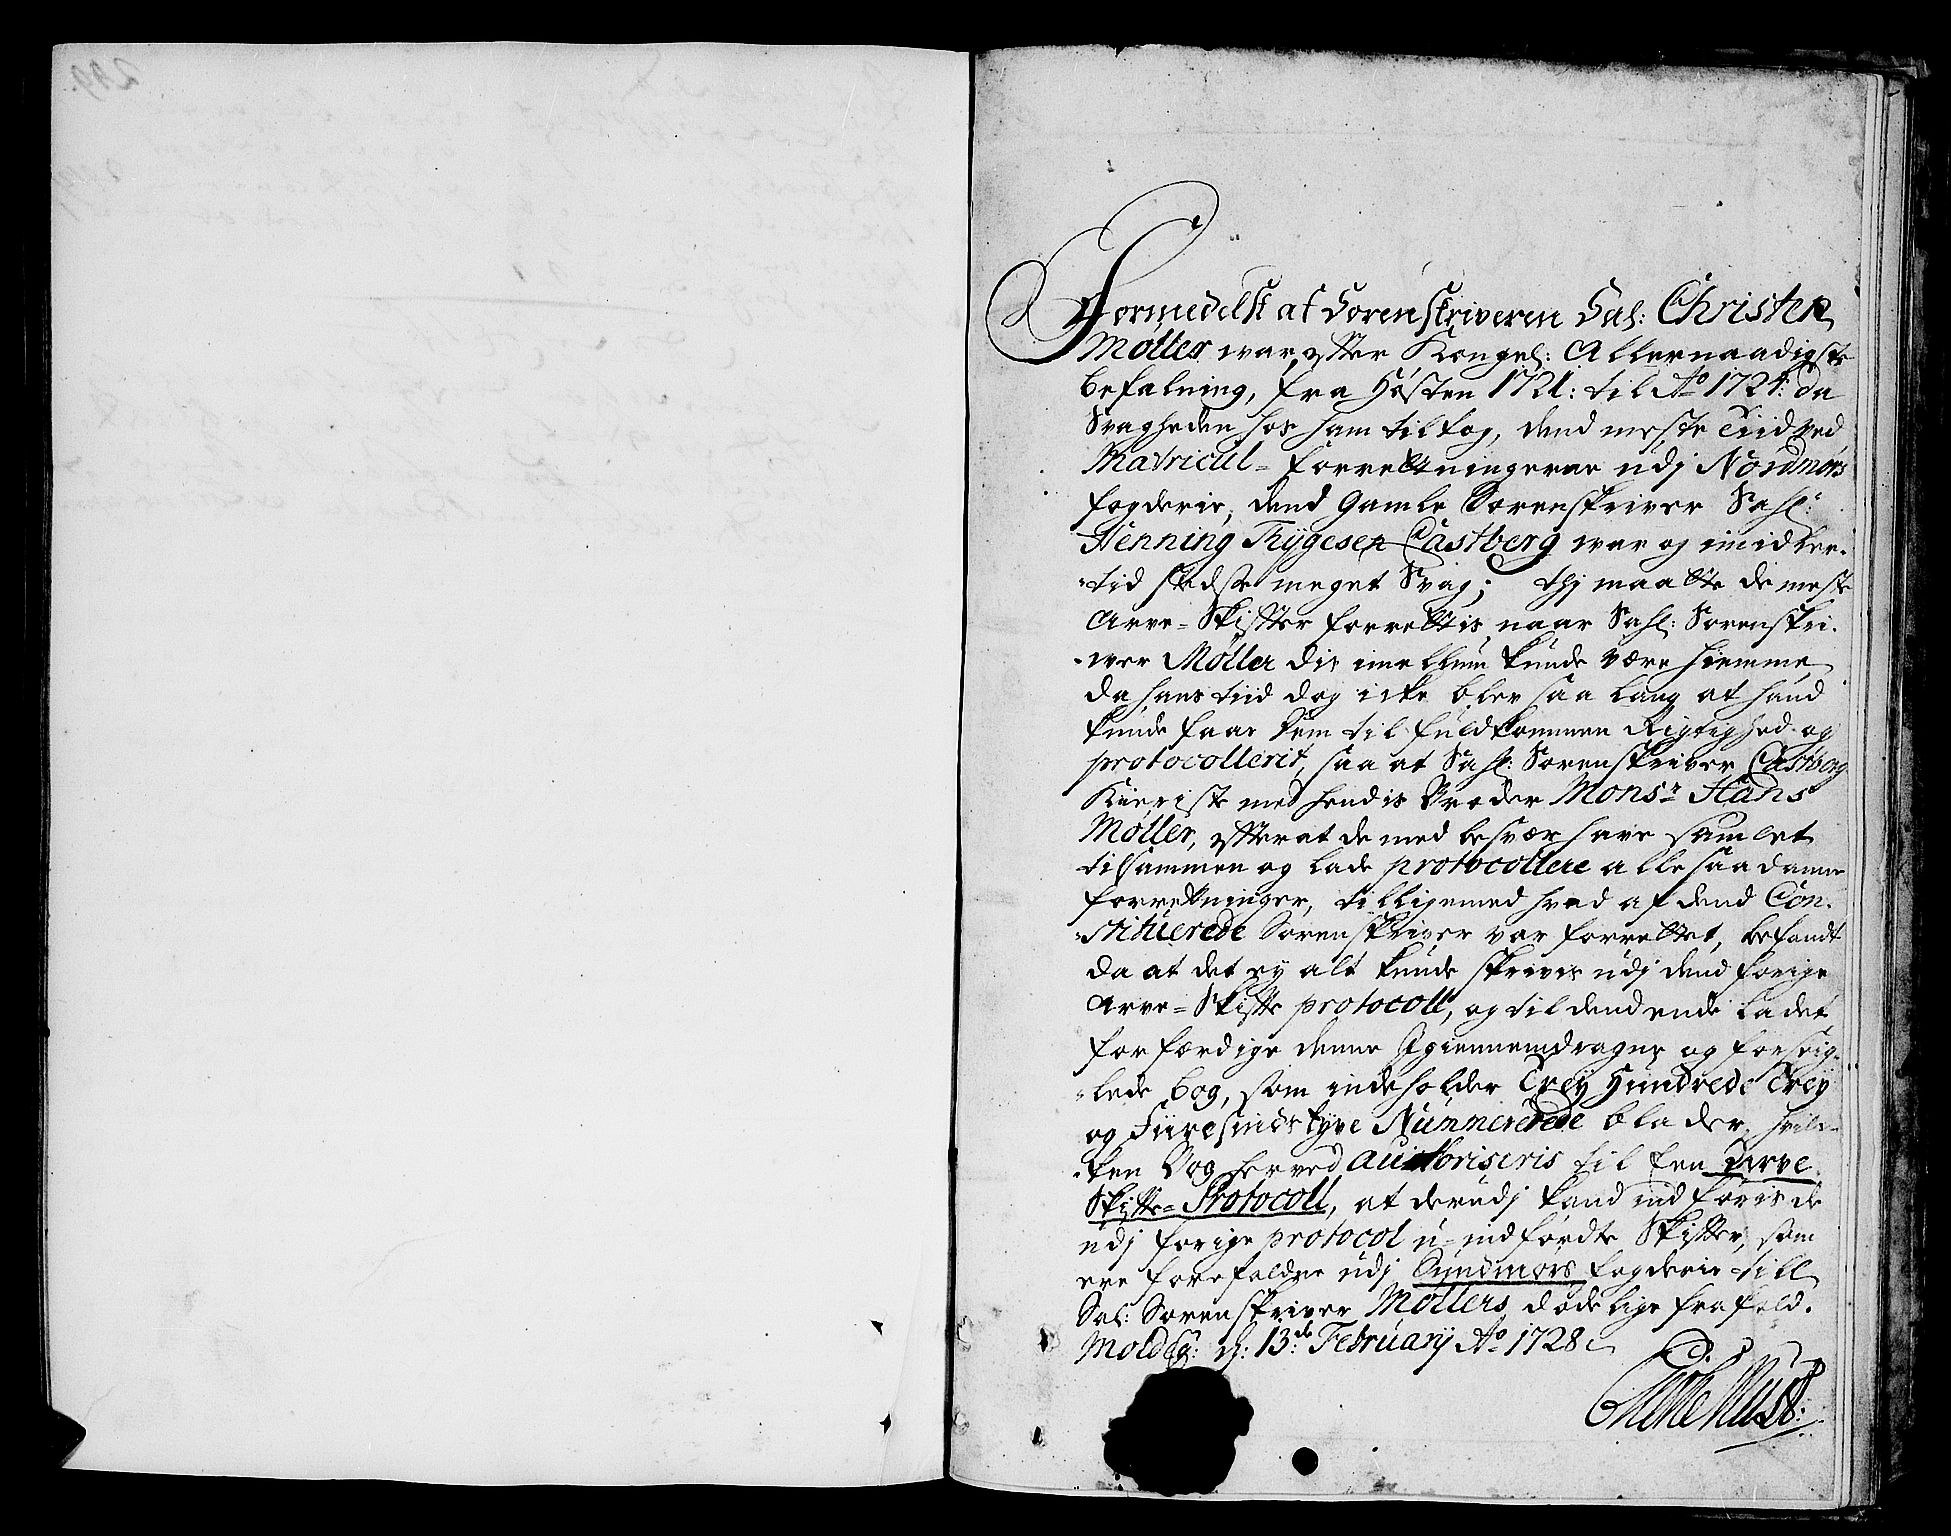 Formedelst at Sorenskriveren Sal: Christen
Møller war, effter Kongel: Allernaadigste
befalning, fra Høsten 1721: til Ao 1724: da
Svagheden hos ham tiltog, dend meste Tiid ved
Matricul-forretningerne udj Nordmørs
fogderie, dend Gamle Sorenskriver Sahl:
Henning Thygesen Castberg war og imidler-
-tid stedse meget Svag; thj maatte de meste
Arve-Skiffter forrettis, naar Sahl: Sorenskri-
-wer Møller dis imellum kunde være hiemme,
da hans tiid dog icke blev saa lang at hand
kunde faae dem til fuldkommen Rigtighed og
protocollerit, saa at Sahl: Sorenskriver Castberg
Kiæriste med hendis Broder Monsr Hans
Møller, effterat de med besvær have samlet
tilsammen og lade protocollere alle saadanne
forretninger, tilligemed hvad af dend Con-
-stituerede Sorenskriver var forrettet, befandt
da at det ey alt kunde skrivis udj dend forige
Arve-Skiffte protocoll, og til dend ende ladet
forfærdige denne Igiennemdragne og forseig-
-lede bog, som indeholder Trey Hundrede Trey
og Fiiresindstyve Nummererede blader, hvil-
-ken Bog herved authoriseris til Een Arve
Skiffte-Protocoll, at derudj kand indføris de
udj forige protocol u-indførdte Skiffter, som
ere forefaldne udj Sundmørs fogderie till
Sal: Sorenskriver Møllers dødelige frafald.
Molde d: 13de February Ao 1728